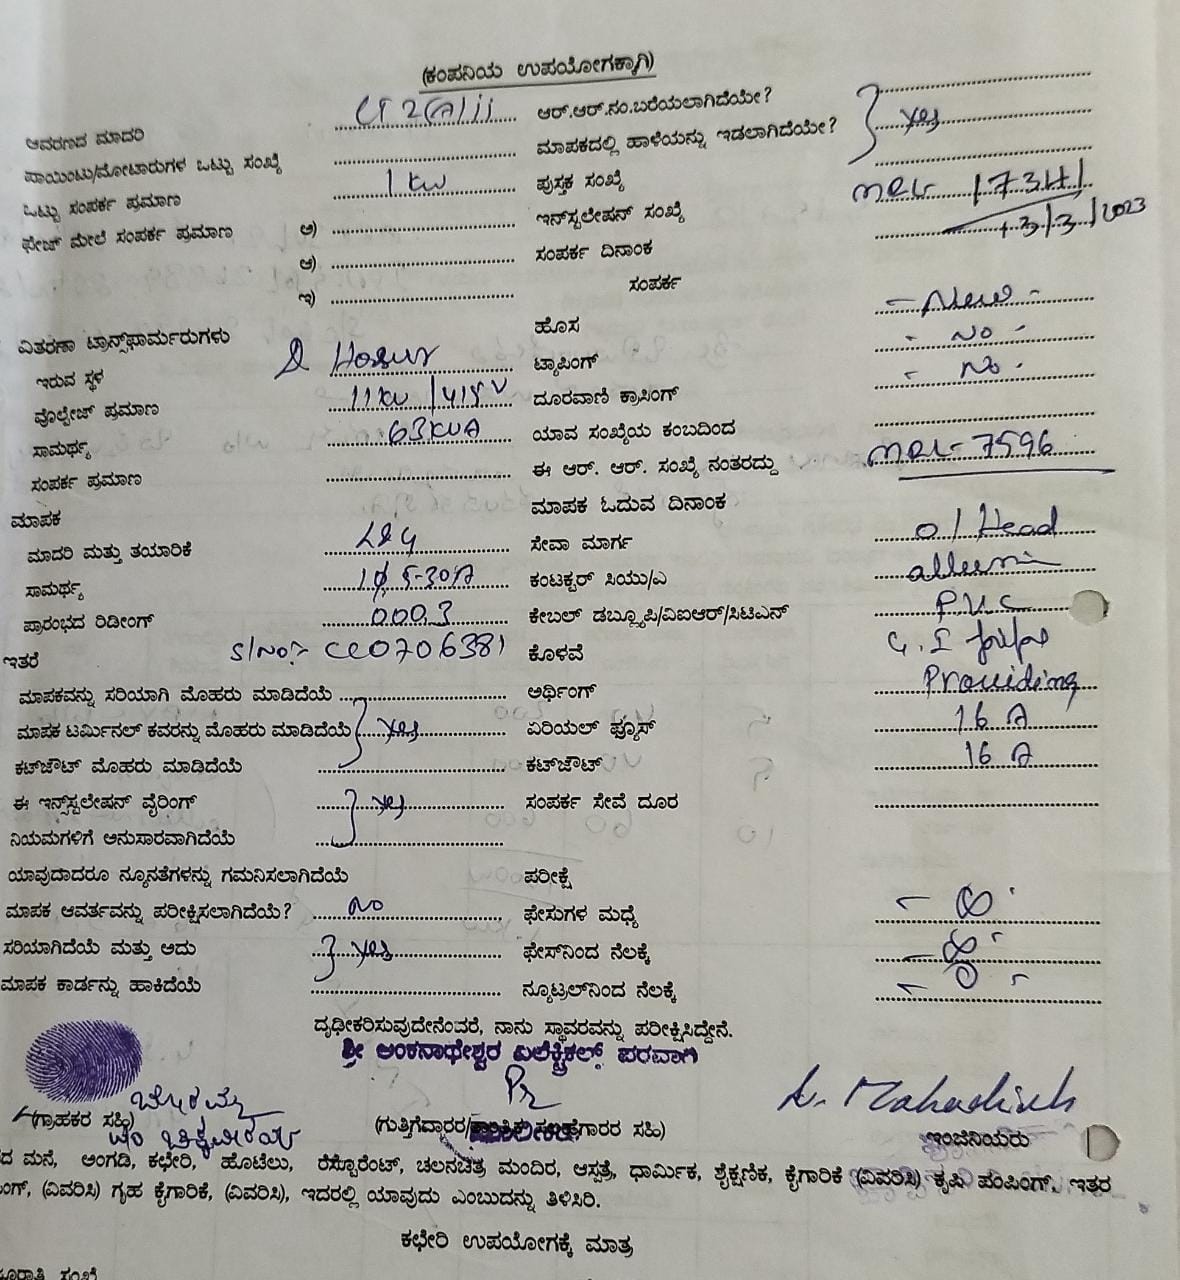 (ಕಂಪನಿಯ ಉಪಯೋಗಕ್ಕಾಗಿ)
ಆವರಣದ ಮಾದರಿ ಆರ್.ಆರ್.ನಂ.ಬರೆಯಲಾಗಿದೆಯೇ?
ಪಾಯಿಂಟು/ಮೋಟಾರುಗಳ ಒಟ್ಟು ಸಂಖ್ಯೆ ಮಾಪಕದಲ್ಲಿ ಹಾಳೆಯನ್ನು ಇಡಲಾಗಿದೆಯೇ? } yes
ಒಟ್ಟು ಸಂಪರ್ಕ ಪ್ರಮಾಣ 1 KW ಪುಸ್ತಕ ಸಂಖ್ಯೆ
ಫೇಜ್ ಮೇಲೆ ಸಂಪರ್ಕ ಪ್ರಮಾಣ ಅ) ಇನ್‌ಸ್ಟಲೇಷನ್ ಸಂಖ್ಯೆ
ಆ) ಸಂಪರ್ಕ ದಿನಾಂಕ 13/3/2023
ಇ) ಸಂಪರ್ಕ
ವಿತರಣಾ ಟ್ರಾನ್ಸ್‌ಫಾರ್ಮರುಗಳು ಹೊಸ - New -
ಇರುವ ಸ್ಥಳ Hosur ಟ್ಯಾಪಿಂಗ್ - No -
ವೊಲ್ಟೇಜ್ ಪ್ರಮಾಣ 11KV/415V ದೂರವಾಣಿ ಕ್ರಾಸಿಂಗ್ - No -
ಸಾಮರ್ಥ್ಯ 63KVA ಯಾವ ಸಂಖ್ಯೆಯ ಕಂಬದಿಂದ
ಸಂಪರ್ಕ ಪ್ರಮಾಣ ಈ ಆರ್. ಆರ್. ಸಂಖ್ಯೆ ನಂತರದ್ದು MRL-7596
ಮಾಪಕ ಮಾಪಕ ಓದುವ ದಿನಾಂಕ
ಮಾದರಿ ಮತ್ತು ತಯಾರಿಕೆ L&G ಸೇವಾ ಮಾರ್ಗ o/Head
ಸಾಮರ್ಥ್ಯ 1φ, 5-30A ಕಂಟಕ್ಟರ್ ಸಿಯು/ಎ
ಪ್ರಾರಂಭದ ರಿಡೀಂಗ್ 000.3 ಕೇಬಲ್ ಡಬ್ಲ್ಯೂಪಿ/ವಿಐಆರ್/ಸಿಟಿಎಸ್ P.V.C
ಇತರೆ S/No:- CC0706381 ಕೊಳವೆ G.I pipe
ಮಾಪಕವನ್ನು ಸರಿಯಾಗಿ ಮೊಹರು ಮಾಡಿದೆಯೆ ಅರ್ಥಿಂಗ್ Providing
ಮಾಪಕ ಟರ್ಮಿನಲ್ ಕವರನ್ನು ಮೊಹರು ಮಾಡಿದೆಯೆ } yes ಏರಿಯಲ್ ಫ್ಯೂಸ್ 16 A
ಕಟ್‌ಔಟ್ ಮೊಹರು ಮಾಡಿದೆಯೆ ಕಟ್‌ಔಟ್ 16 A
ಈ ಇನ್ಸ್‌ಸ್ಟಲೇಷನ್ ವೈರಿಂಗ್ } yes ಸಂಪರ್ಕ ಸೇವೆ ದೂರ
ನಿಯಮಗಳಿಗೆ ಅನುಸಾರವಾಗಿದೆಯೆ
ಯಾವುದಾದರೂ ನ್ಯೂನತೆಗಳನ್ನು ಗಮನಿಸಲಾಗಿದೆಯೆ ಪರೀಕ್ಷೆ
ಮಾಪಕ ಆವರ್ತವನ್ನು ಪರೀಕ್ಷಿಸಲಾಗಿದೆಯೆ? No ಫೇಸುಗಳ ಮಧ್ಯೆ - ∞ -
ಸರಿಯಾಗಿದೆಯೆ ಮತ್ತು ಅದು } yes ಫೇಸ್‌ನಿಂದ ನೆಲಕ್ಕೆ - ∞ -
ಮಾಪಕ ಕಾರ್ಡನ್ನು ಹಾಕಿದೆಯೆ ನ್ಯೂಟ್ರಲ್‌ನಿಂದ ನೆಲಕ್ಕೆ - 0 -
ದೃಢೀಕರಿಸುವುದೇನೆಂದರೆ, ನಾನು ಸ್ಥಾವರವನ್ನು ಪರೀಕ್ಷಿಸಿದ್ದೇನೆ.
ಶ್ರೀ ಅಂಕನಾಥೇಶ್ವರ ಎಲೆಕ್ಟ್ರಿಕಲ್ಸ್ ಪರವಾಗಿ
(ಗ್ರಾಹಕರ ಸಹಿ) ಇಂಜಿನಿಯರು
ದ ಮನೆ, ಅಂಗಡಿ, ಕಛೇರಿ, ಹೊಟೆಲು, ರೆಸ್ಟೊರೆಂಟ್, ಚಲನಚಿತ್ರ ಮಂದಿರ, ಆಸ್ಪತ್ರೆ, ಧಾರ್ಮಿಕ, ಶೈಕ್ಷಣಿಕ, ಕೈಗಾರಿಕೆ (ವಿವರಿಸಿ) ಕೃಷಿ ಪಂಪಿಂಗ್, ಇತರ
ಂಗ್, (ವಿವರಿಸಿ) ಗೃಹ ಕೈಗಾರಿಕೆ, (ವಿವರಿಸಿ), ಇದರಲ್ಲಿ ಯಾವುದು ಎಂಬುದನ್ನು ತಿಳಿಸಿರಿ.
ಕಛೇರಿ ಉಪಯೋಗಕ್ಕೆ ಮಾತ್ರ